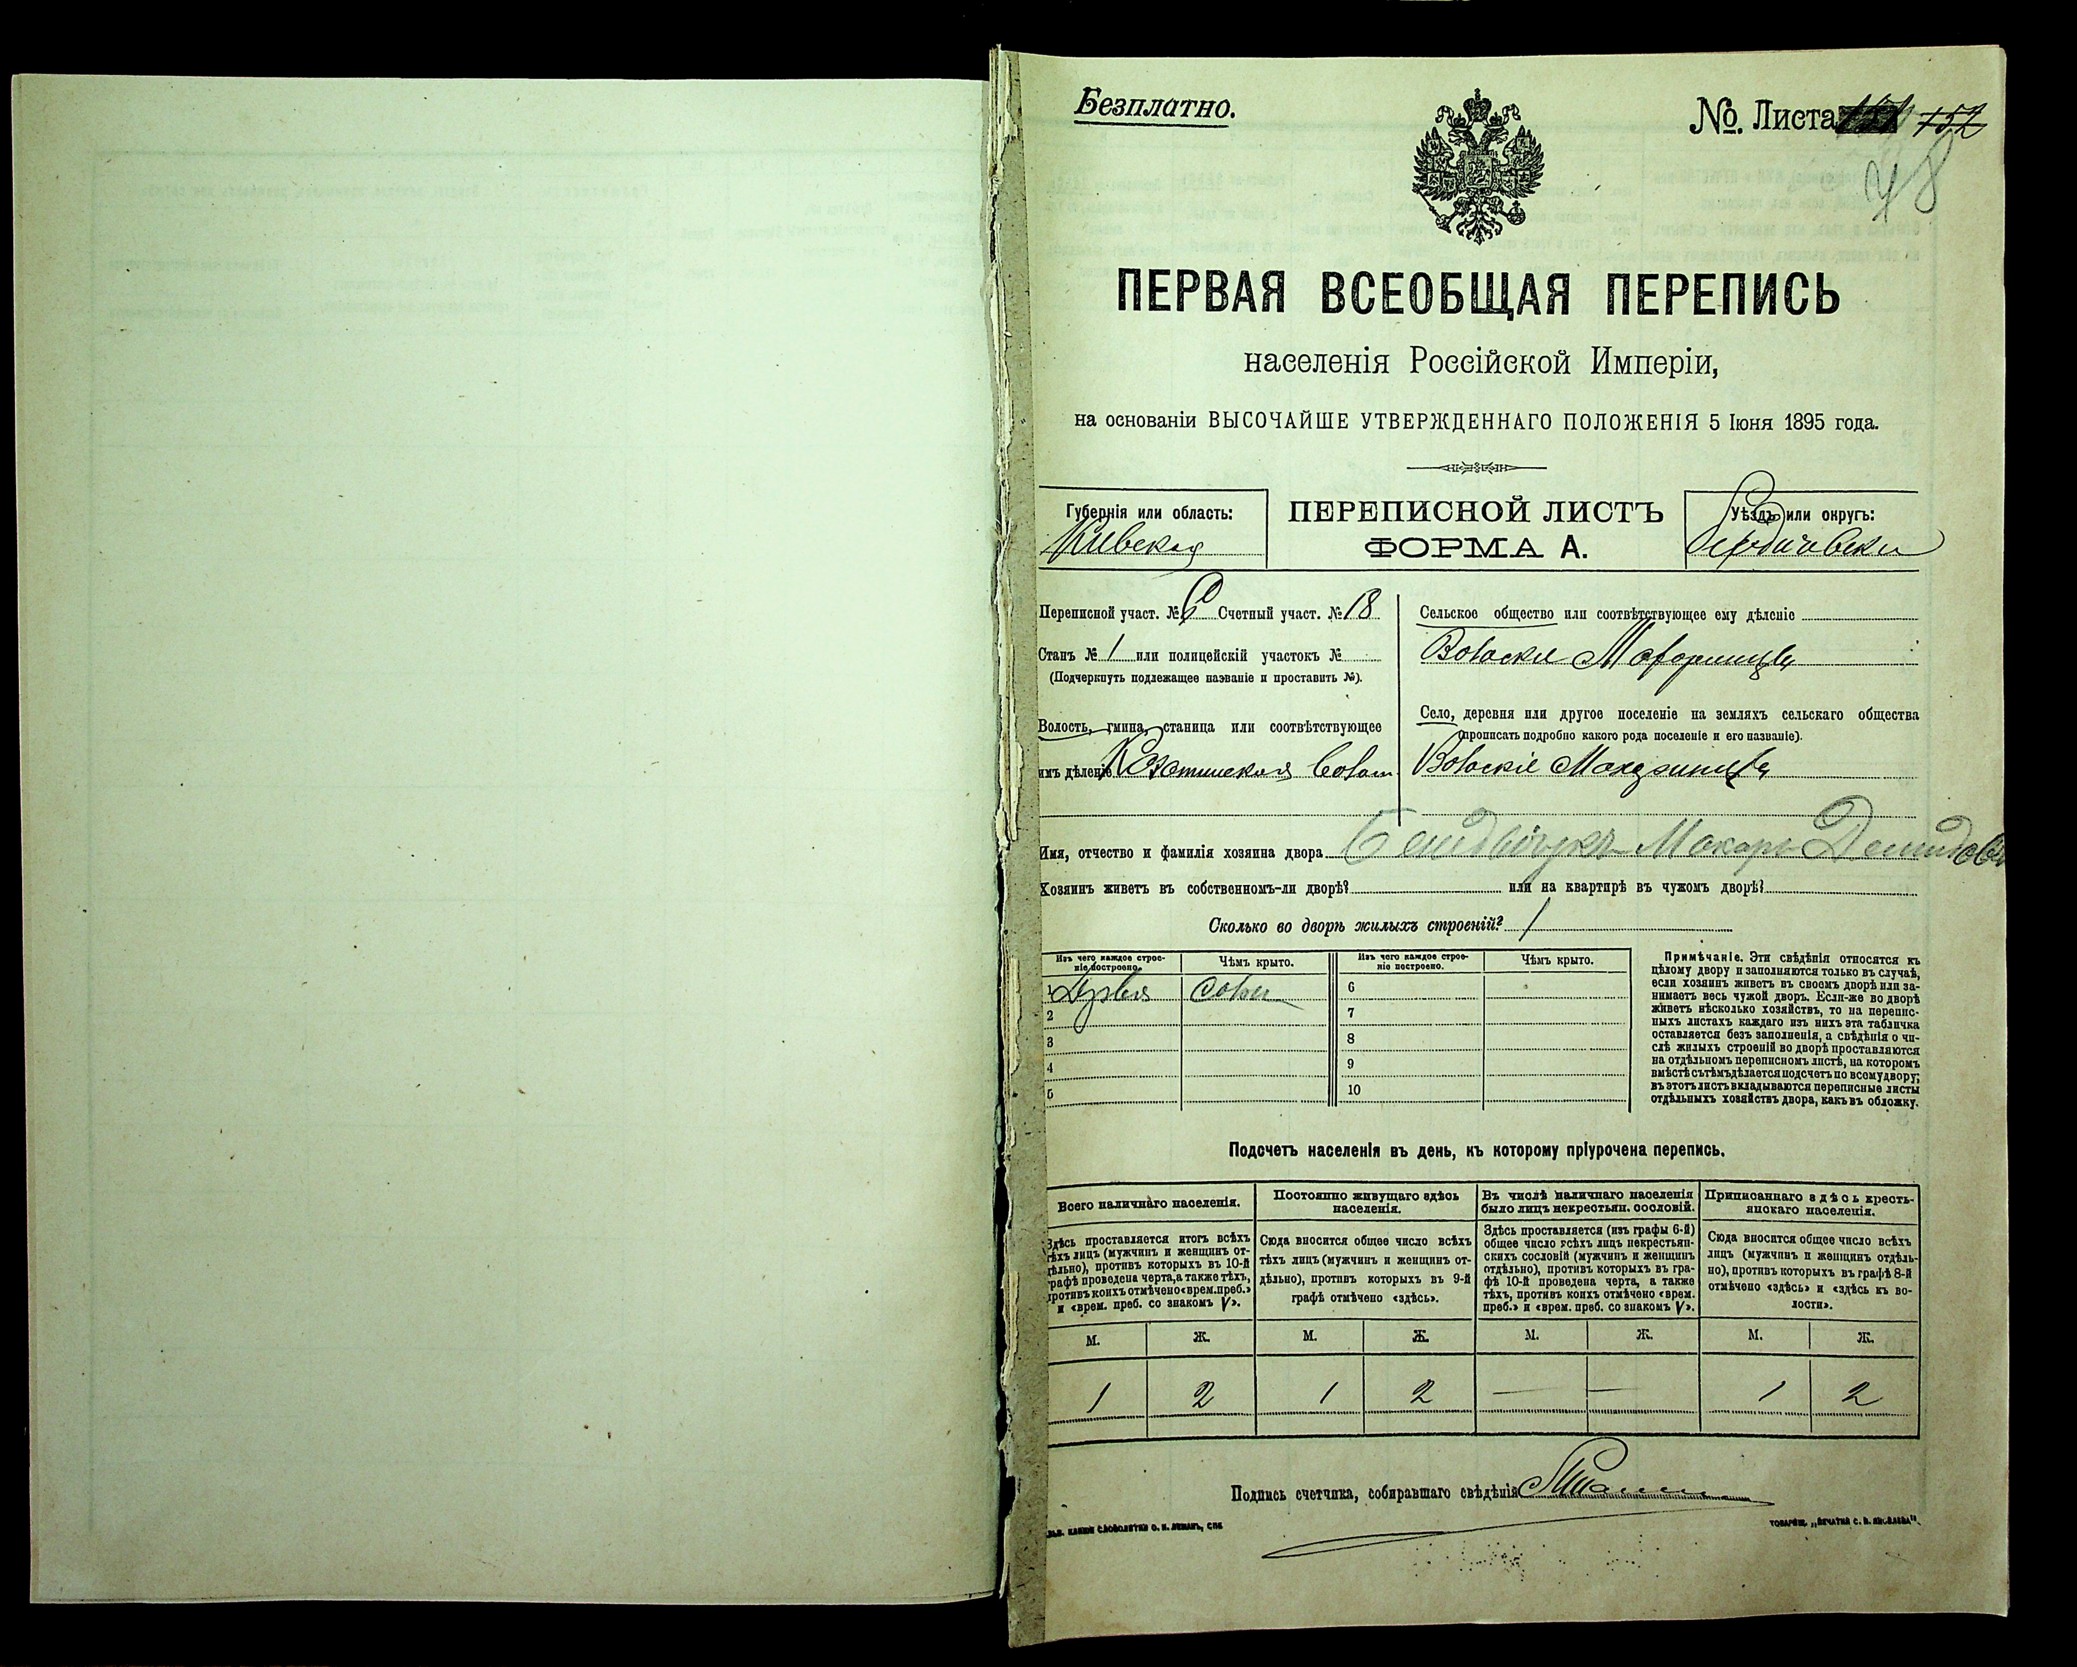 Безплатно.
№. Листа 152
48
ПЕРВАЯ ВСЕОБЩАЯ ПЕРЕПИСЬ
населенія Россійской Имперіи,
на основаніи ВЫСОЧАЙШЕ УТВЕРЖДЕННАГО ПОЛОЖЕНІЯ 5 Іюня 1895 года.
Губернія или область:
Киевская
ПЕРЕПИСНОЙ ЛИСТЪ
ФОРМА А.
Уѣздъ или округъ:
Переписной участ. № Счетный участ. № 18
Станъ № 1 или полицейскій участокъ №
(Подчеркнуть подлежащее названіе и проставить №).
Волость, гмина, станица или соотвѣтствующее
имъ дѣленіе
Сельское общество или соотвѣтствующее ему дѣленіе
Село, деревня или другое поселеніе на земляхъ сельскаго общества
(прописать подробно какого рода поселеніе и его названіе).
Имя, отчество и фамилія хозяина двора Макаръ
Хозяинъ живетъ въ собственномъ-ли дворѣ? или на квартирѣ въ чужомъ дворѣ?
Сколько во дворѣ жилыхъ строеній? 1
Изъ чего каждое строе-
ніе построено.
Чѣмъ крыто.
Изъ чего каждое строе-
ніе построено.
Чѣмъ крыто.
1 6
2 7
3 8
4 9
5 10
Примѣчаніе. Эти свѣдѣнія относятся къ
цѣлому двору и заполняются только въ случаѣ,
если хозяинъ живетъ въ своемъ дворѣ или за-
нимаетъ весь чужой дворъ. Если-же во дворѣ
живетъ нѣсколько хозяйствъ, то на перепис-
ныхъ листахъ каждаго изъ нихъ эта табличка
оставляется безъ заполненія, а свѣдѣнія о чи-
слѣ жилыхъ строеній во дворѣ проставляются
на отдѣльномъ переписномъ листѣ, на которомъ
вмѣстѣ съ тѣмъ дѣлается подсчетъ по всему двору;
въ этотъ листъ вкладываются переписные листы
отдѣльныхъ хозяйствъ двора, какъ въ обложку.
Подсчетъ населенія въ день, къ которому пріурочена перепись.
Всего наличнаго населенія.
Здѣсь проставляется итогъ всѣхъ
тѣхъ лицъ (мужчинъ и женщинъ от-
дѣльно), противъ которыхъ въ 10-й
графѣ проведена черта, а также тѣхъ,
противъ коихъ отмѣчено «врем. преб.»
и «врем. преб. со знакомъ V».
Постоянно живущаго здѣсь
населенія.
Сюда вносится общее число всѣхъ
тѣхъ лицъ (мужчинъ и женщинъ от-
дѣльно), противъ которыхъ въ 9-й
графѣ отмѣчено «здѣсь».
Въ числѣ наличнаго населенія
было лицъ некрестьян. сословій.
Здѣсь проставляется (изъ графы 6-й)
общее число всѣхъ лицъ некрестьян-
скихъ сословій (мужчинъ и женщинъ
отдѣльно), противъ которыхъ въ гра-
фѣ 10-й проведена черта, а также
тѣхъ, противъ коихъ отмѣчено «врем.
преб.» и «врем. преб. со знакомъ V».
Приписаннаго здѣсь кресть-
янскаго населенія.
Сюда вносится общее число всѣхъ
лицъ (мужчинъ и женщинъ отдѣль-
но), противъ которыхъ въ графѣ 8-й
отмѣчено «здѣсь» и «здѣсь къ во-
лости».
М. Ж. М. Ж. М. Ж. М. Ж.
1 2 1 2 — — 1 2
Подпись счетчика, собиравшаго свѣдѣнія